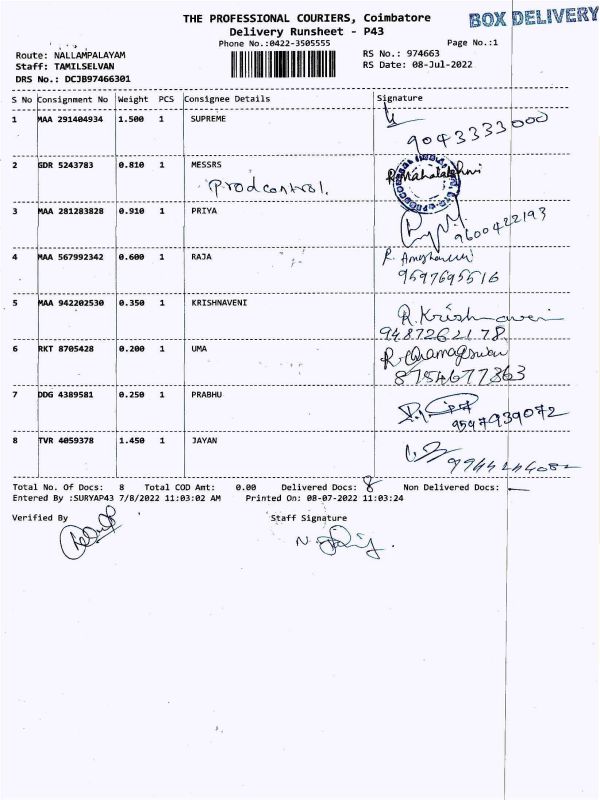 THE PROFESSIONAL COURIERS, Coimbatore
BOX DELIVERY
Delivery Runsheet - P43
Phone No.:0422-3505555
Page No.:1
Route: NALLAMPALAYAM
RS No.: 974663
Staff: TAMILSELVAN
RS Date: 08-Jul-2022
DRS No.: DCJB97466301
S No Consignment No Weight PCS Consignee Details Signature
1 MAA 291404934 1.500 1 SUPREME
9043333000
2 GDR 5243783 0.810 1 MESSRS R. Mahalakshmi
Prodcontrol.
3 MAA 281283828 0.910 1 PRIYA
9600422193
4 MAA 567992342 0.600 1 RAJA
9597695516
5 MAA 942202530 0.350 1 KRISHNAVENI
R.Krishnaveni
9487262178.
6 RKT 8705428 0.200 1 UMA
8754677363
7 DDG 4389581 0.250 1 PRABHU
9597939072
8 TVR 4059378 1.450 1 JAYAN
Total No. Of Docs: 8 Total COD Amt: 0.00 Delivered Docs: 8 Non Delivered Docs: —
Entered By :SURYAP43 7/8/2022 11:03:02 AM Printed On: 08-07-2022 11:03:24
Verified By Staff Signature